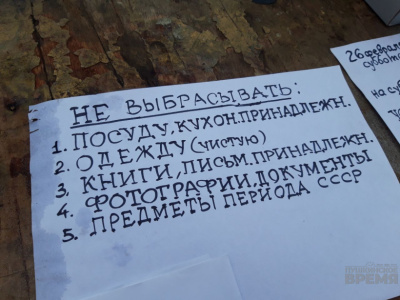 НЕ ВЫБРАСЫВАТЬ:
1. ПОСУДУ, КУХОН.ПРИНАДЛЕЖН.
2. ОДЕЖДУ (чистую)
3. КНИГИ, ПИСЬМ.ПРИНАДЛЕЖН.
4. ФОТОГРАФИИ, ДОКУМЕНТЫ
5. ПРЕДМЕТЫ ПЕРИОДА СССР
26 феврал
суббота
на су
ВРЕМЯ